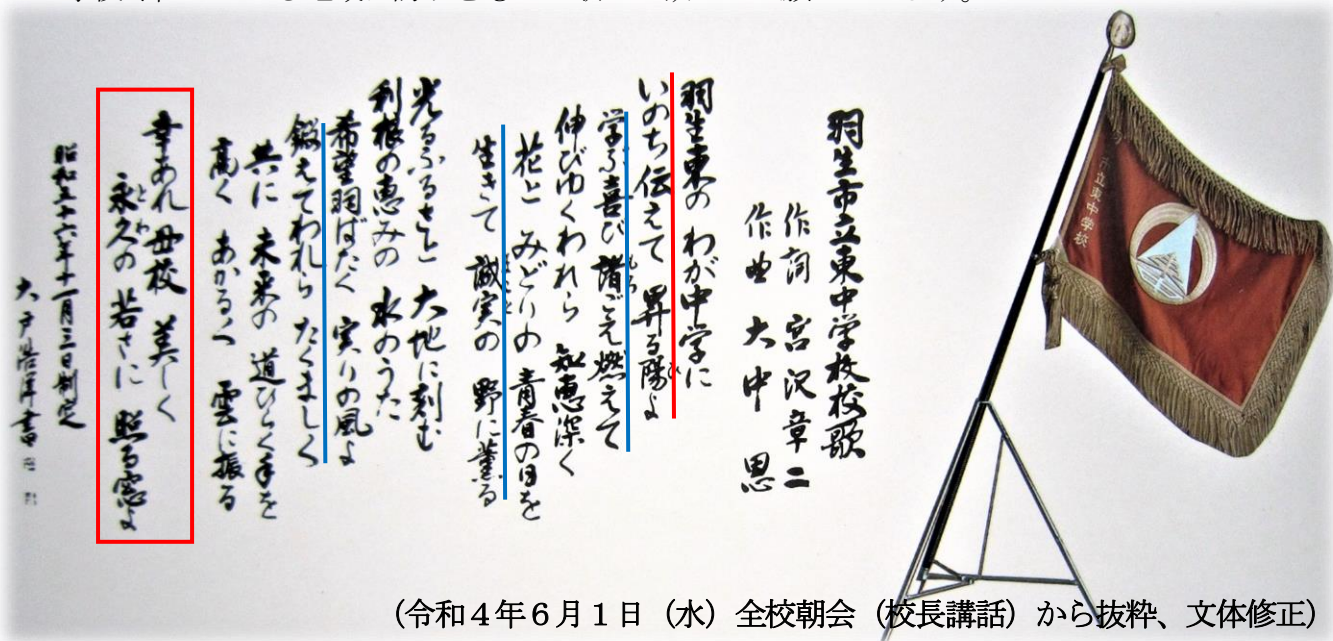 羽生市立東中学校校歌
作詞 宮沢章二
作曲 大中 恩
羽生東の わが中学に
いのち伝えて 昇る陽よ
学ぶ喜び 諸ごえ燃えて
伸びゆくわれら 知恵深く
花と みどりの 青春の日を
生きて 誠実の 野に薫る
光るふるさと 大地に刻む
利根の恵みの 水のうた
希望羽ばたく 実りの風よ
鍛えてわれら たくましく
共に 未来の 道ひらく手を
高く あかるく 雲に振る
幸あれ母校 美しく
永久の 若さに 照る窓よ
昭和五十六年十一月三日制定
市立東中学校
(令和4年6月1日(水)全校朝会(校長講話)から抜粋、文体修正)